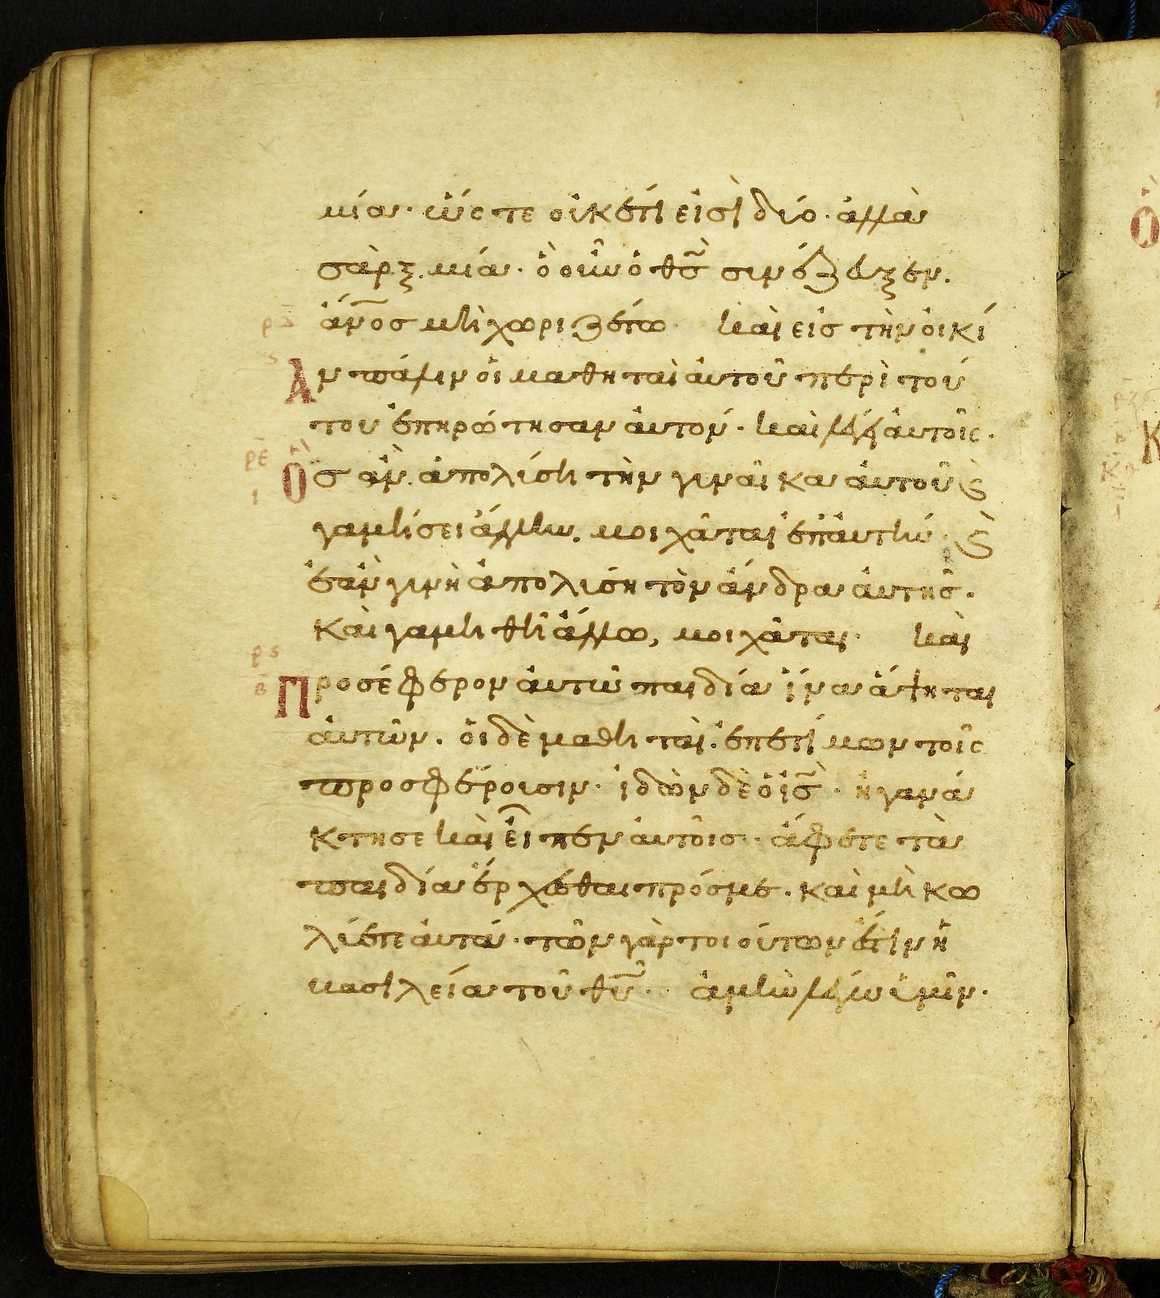 μία· ὥστε οὐκέτι εἰσὶ δύο· ἀλλὰ
σὰρξ μία· ὃ οὖν ὁ θς συνέζευξεν.
ρδ ἄνος μὴ χωριζέτω· καὶ εἰς τὴν οἰκί
ς Αν πάλιν οἱ μαθηταὶ αὐτοῦ περὶ τού
του ἐπηρώτησαν αὐτόν· καὶ λέγει αὐτοῖς·
ρε Ὃς ἂν ἀπολύση τὴν γυναῖκα αὐτοῦ ϗ
γαμήσει ἄλλην, μοιχᾶται ἐπ αὐτήν· ϗ
ἐὰν γυνὴ ἀπολύση τὸν ἄνδρα αὐτῆς·
καὶ γαμηθῆ ἄλλω, μοιχᾶται· καὶ
ρς β Προσέφερον αὐτῶ παιδία ἵνα ἅψηται
αὐτῶν· οἱ δὲ μαθηταὶ ἐπετίμων τοῖς
προσφέρουσιν· ἰδὼν δὲ ὁ ις· ἠγανά
κτησε καὶ εἶπεν αὐτοῖς· ἄφετε τὰ
παιδία ἔρχεσθαι πρός με· καὶ μὴ κω
λύετε αὐτά· τῶν γὰρ τοιούτων ἐστὶν ἡ
βασιλεία τοῦ θυ· ἀμὴν λέγω ὑμῖν·